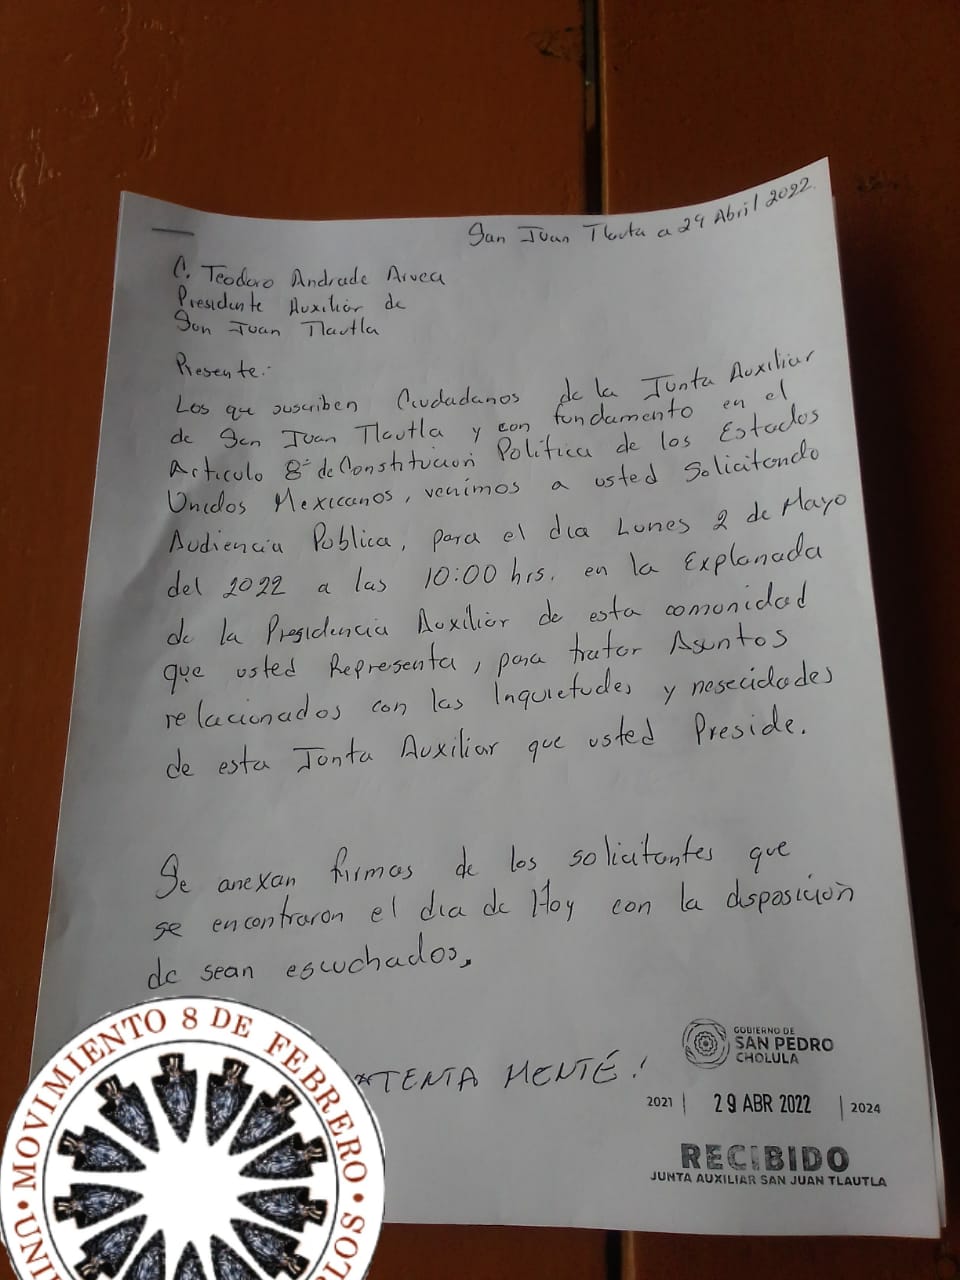 San Juan Tlauta a 29 Abril 2022.
C. Teodoro Andrade Arvea
Presidente Auxiliar de
San Juan Tlautla
Presente:
Los que suscriben Ciudadanos de la Junta Auxiliar
de San Juan Tlautla y con fundamento en el
Articulo 8º de Constitución Política de los Estados
Unidos Mexicanos, venimos a usted Solicitando
Audiencia Publica, para el dia Lunes 2 de Mayo
del 2022 a las 10:00 hrs. en la Explanada
de la Presidencia Auxiliar de esta comunidad
que usted Representa, para tratar Asuntos
relacionados con las Inquietudes y nesecidades
de esta Junta Auxiliar que usted Preside.
Se anexan firmas de los solicitantes que
se encontraron el dia de Hoy con la disposición
de sean escuchados.
ATENTA MENTÉ!
GOBIERNO DE
SAN PEDRO
CHOLULA
2021 | 29 ABR 2022 | 2024
RECIBIDO
JUNTA AUXILIAR SAN JUAN TLAUTLA
MOVIMIENTO 8 DE FEBRERO